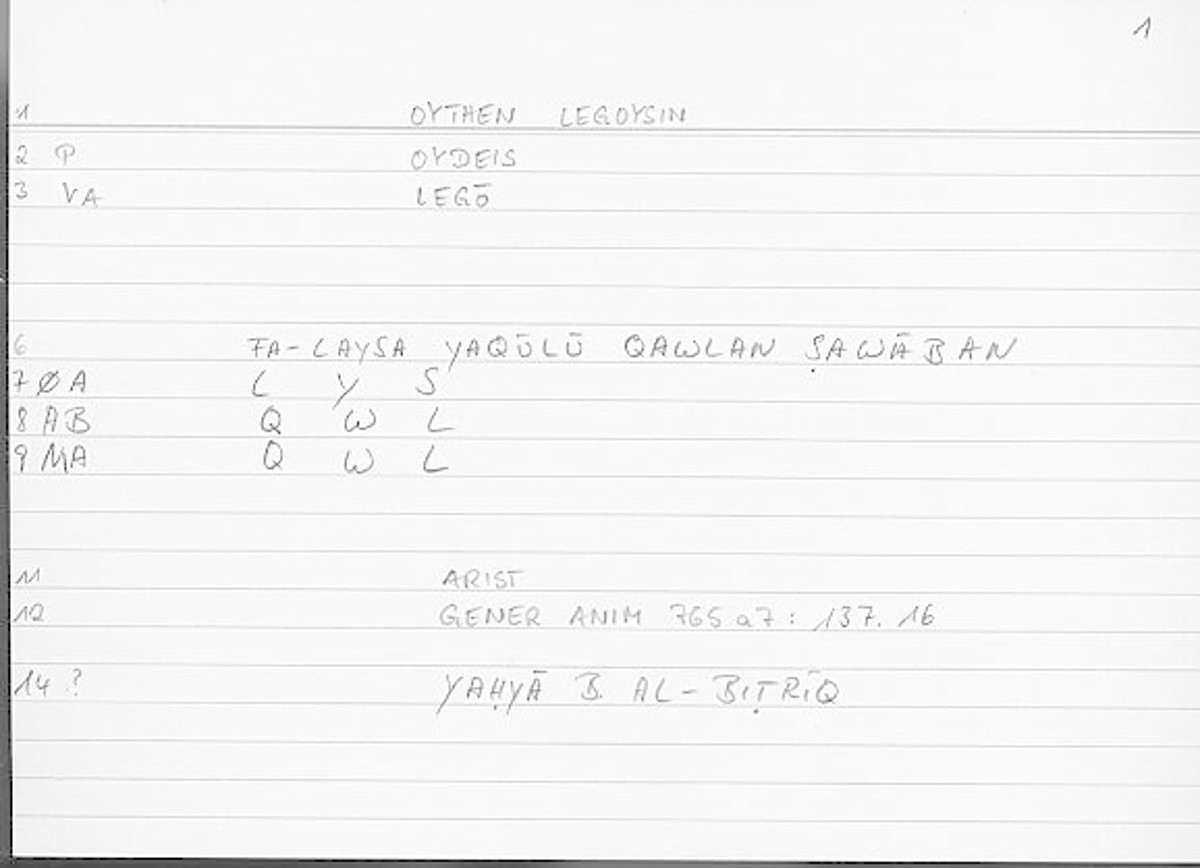 1
1 OYTHEN LEGOYSIN
2 P OYDEIS
3 VA LEGŌ
6 FA-LAYSA YAQŪLŪ QAWLAN ṢAWĀBAN
7 ØA L Y S
8 AB Q W L
9 MA Q W L
11 ARIST
12 GENER ANIM 765 a7: 137. 16
14 ? YAḤYĀ B. AL-BIṬRĪQ